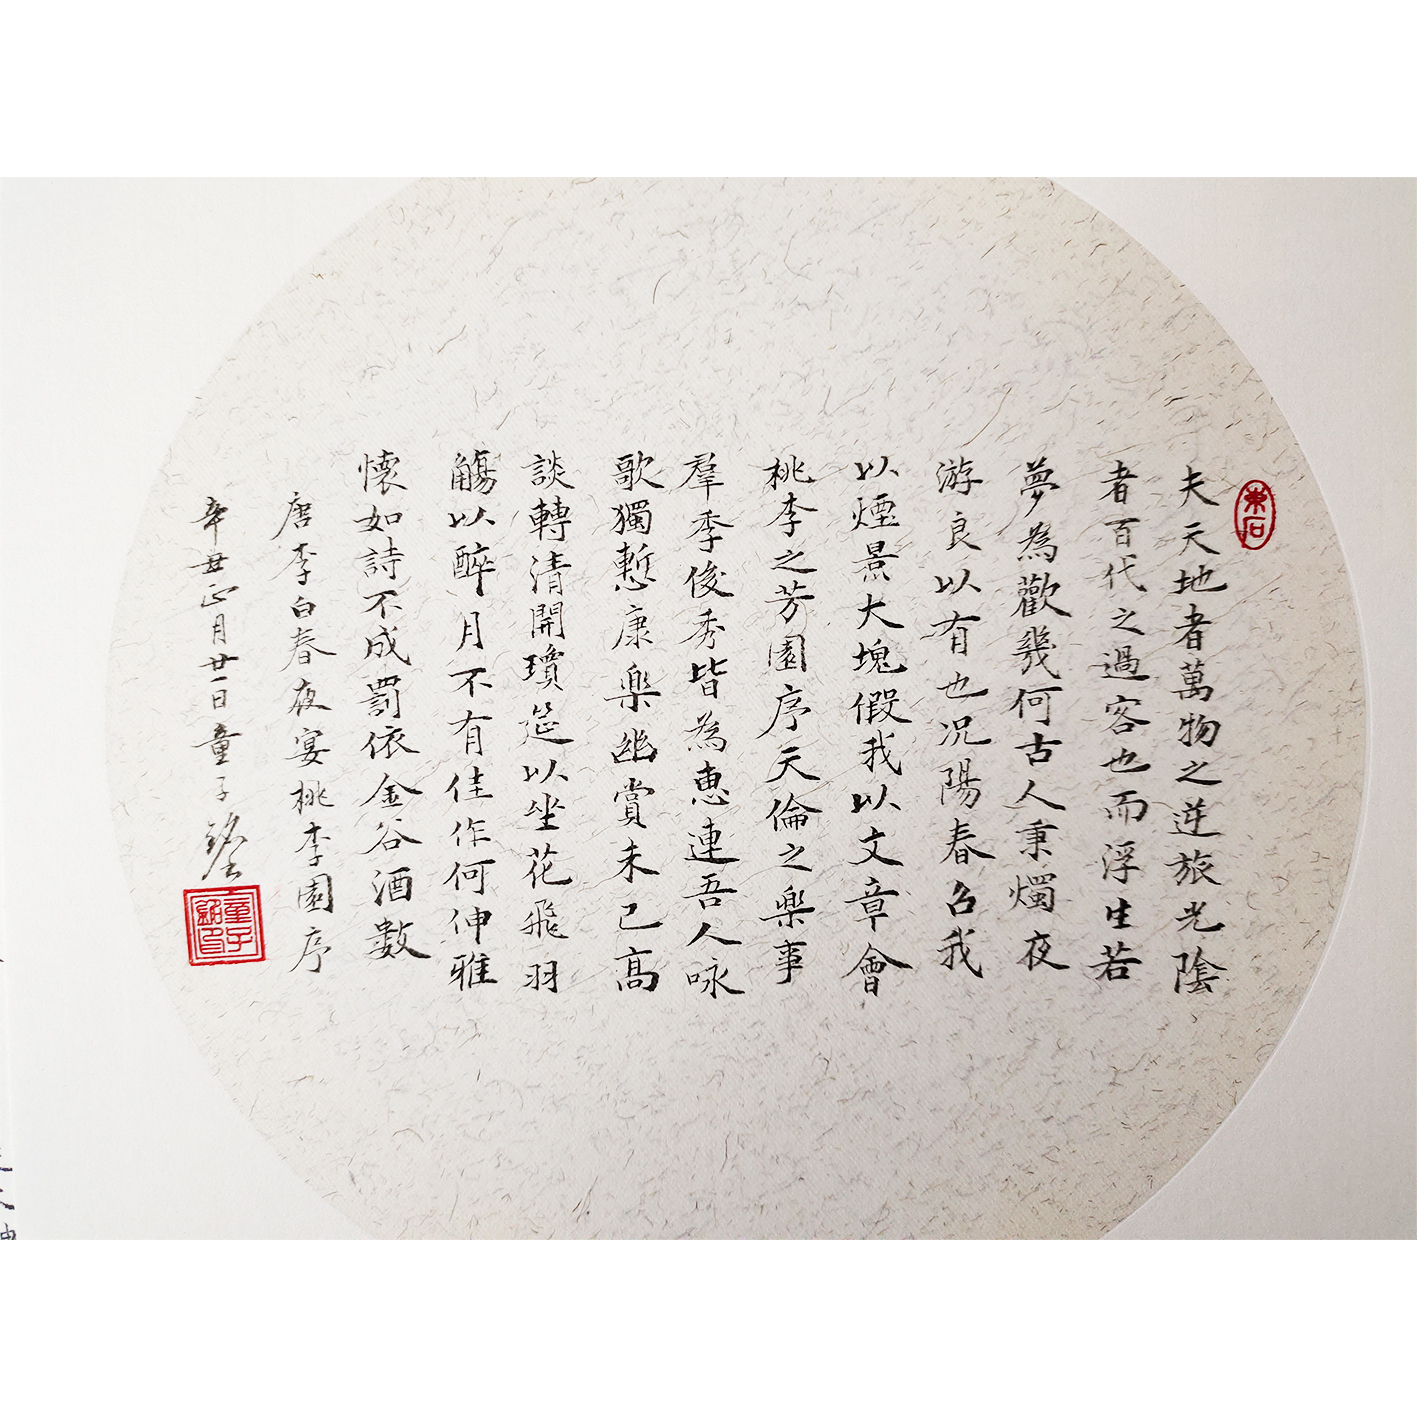 東石
夫天地者萬物之逆旅光陰
者百代之過客也而浮生若
夢為歡幾何古人秉燭夜
游良以有也况陽春召我
以煙景大塊假我以文章會
桃李之芳園序天倫之樂事
羣季俊秀皆為惠連吾人咏
歌獨慙康樂幽賞未已高
談轉清開瓊筵以坐花飛羽
觴以醉月不有佳作何伸雅
懷如詩不成罰依金谷酒數
唐李白春夜宴桃李園序
辛丑正月廿一日童子